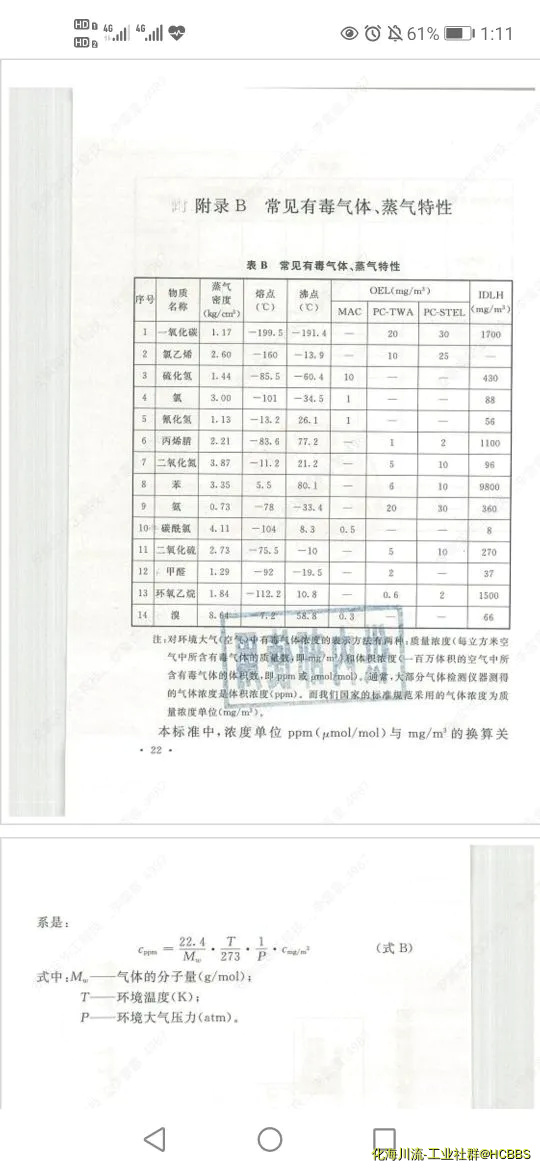 HD 1 4G 4G 61% 1:11
HD 2
附录 B 常见有毒气体、蒸气特性
表 B 常见有毒气体、蒸气特性
序号 物质名称 蒸气密度(kg/cm³) 熔点(℃) 沸点(℃) OEL(mg/m³) IDLH(mg/m³)
MAC PC-TWA PC-STEL
1 一氧化碳 1.17 -199.5 -191.4 — 20 30 1700
2 氯乙烯 2.60 -160 -13.9 — 10 25 —
3 硫化氢 1.44 -85.5 -60.4 10 — — 430
4 氯 3.00 -101 -34.5 1 — — 88
5 氰化氢 1.13 -13.2 26.1 1 — — 56
6 丙烯腈 2.21 -83.6 77.2 — 1 2 1100
7 二氧化氮 3.87 -11.2 21.2 — 5 10 96
8 苯 3.35 5.5 80.1 — 6 10 9800
9 氨 0.73 -78 -33.4 — 20 30 360
10 碳酰氯 4.11 -104 8.3 0.5 — — 8
11 二氧化硫 2.73 -75.5 -10 — 5 10 270
12 甲醛 1.29 -92 -19.5 — 2 — 37
13 环氧乙烷 1.84 -112.2 10.8 — 0.6 2 1500
14 溴 8.64 -7.2 58.8 0.3 — — 66
注:对环境大气(空气)中有毒气体浓度的表示方法有两种:质量浓度(每立方米空
气中所含有毒气体的质量数,即 mg/m³)和体积浓度(一百万体积的空气中所
含有毒气体的体积数,即 ppm 或 μmol/mol)。通常,大部分气体检测仪器测得
的气体浓度是体积浓度(ppm)。而我们国家的标准规范采用的气体浓度为质
量浓度单位(mg/m³)。
本标准中,浓度单位 ppm(μmol/mol)与 mg/m³ 的换算关
· 22 ·
系是:
c_ppm = 22.4/M_w · T/273 · 1/P · c_mg/m³ (式 B)
式中:M_w——气体的分子量(g/mol);
T——环境温度(K);
P——环境大气压力(atm)。
化海川流-工业社群@HCBBS